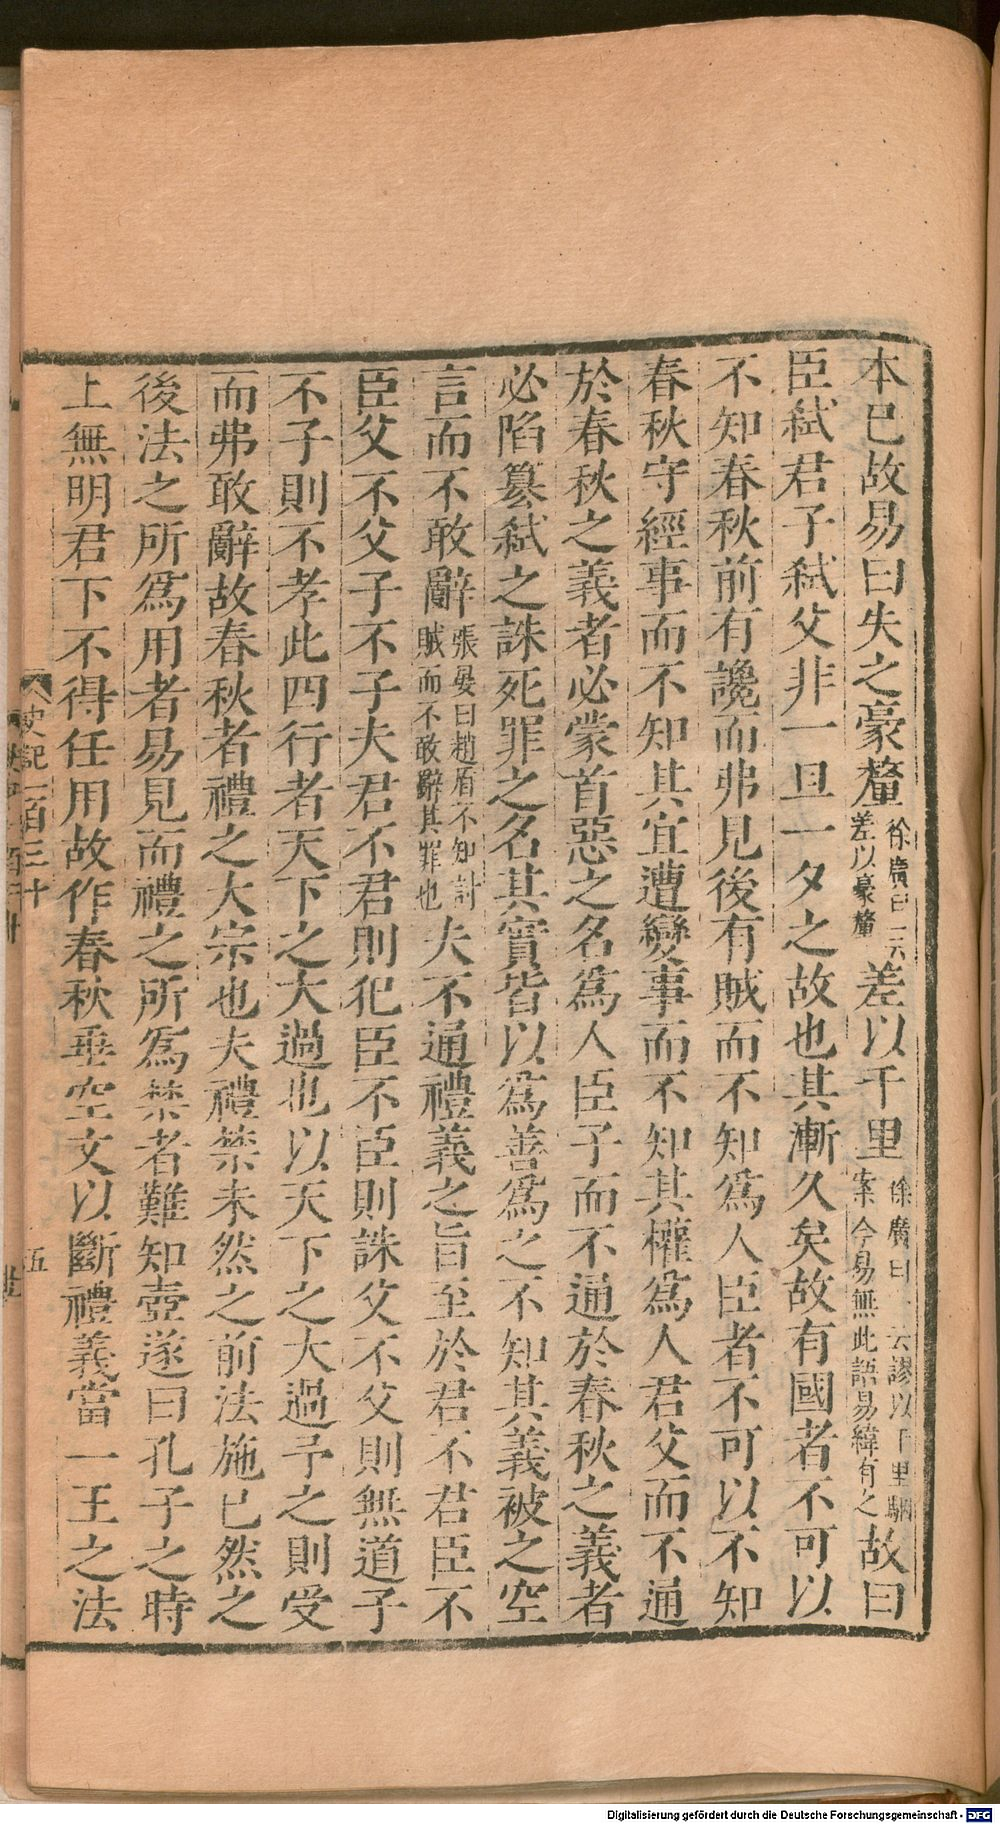 本已故易曰失之豪釐徐廣曰一云差以豪釐差以千里徐廣曰一云謬以千里駰案今易無此語易緯有之故曰
臣弒君子弒父非一旦一夕之故也其漸久矣故有國者不可以
不知春秋前有讒而弗見後有賊而不知爲人臣者不可以不知
春秋守經事而不知其宜遭變事而不知其權爲人君父而不通
於春秋之義者必蒙首惡之名爲人臣子而不通於春秋之義者
必陷篡弒之誅死罪之名其實皆以爲善爲之不知其義被之空
言而不敢辭張晏曰趙盾不知討賊而不敢辭其罪也夫不通禮義之旨至於君不君臣不
臣父不父子不子夫君不君則犯臣不臣則誅父不父則無道子
不子則不孝此四行者天下之大過也以天下之大過予之則受
而弗敢辭故春秋者禮之大宗也夫禮禁未然之前法施已然之
後法之所爲用者易見而禮之所爲禁者難知壺遂曰孔子之時
上無明君下不得任用故作春秋垂空文以斷禮義當一王之法
史記一百三十
五
Digitalisierung gefördert durch die Deutsche Forschungsgemeinschaft - DFG